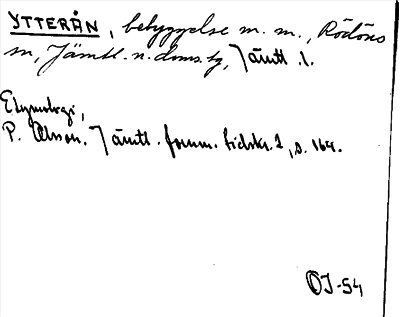 YTTERÅN, bebyggelse m. m., Rödöns
sn, Jämtl. n. doms. tg, Jämtl. l.
Etymologi,
P. Olsson. Jämtl. fornm. tidskr. 2, s. 164.
OJ-54